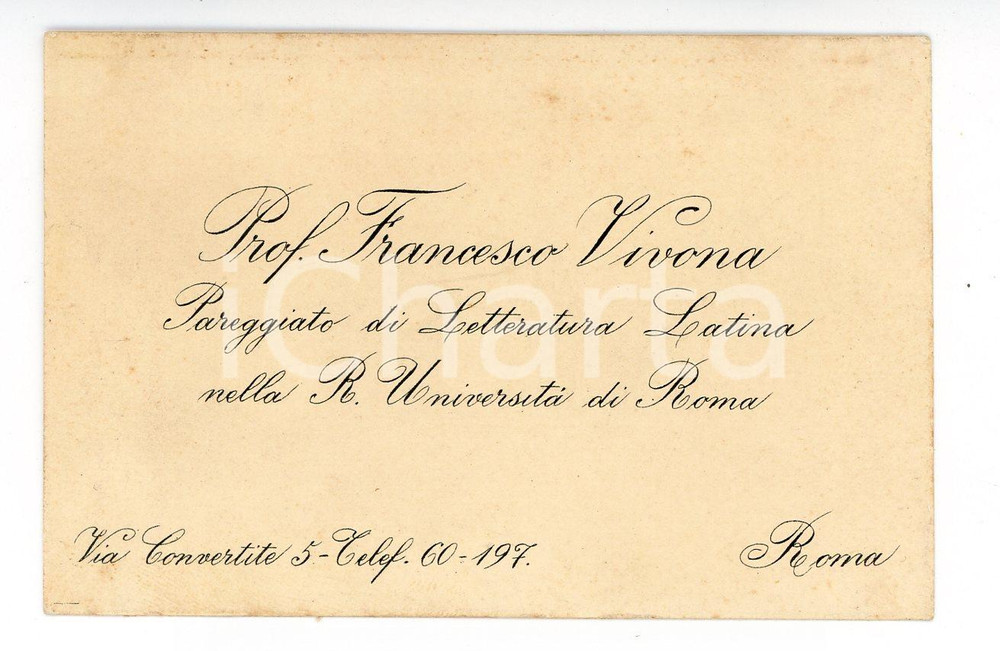 Prof. Francesco Vivona
Pareggiato di Letteratura Latina
nella R. Universitá di Roma
Via Convertite 5-Telef. 60-197.
Roma
iCharta